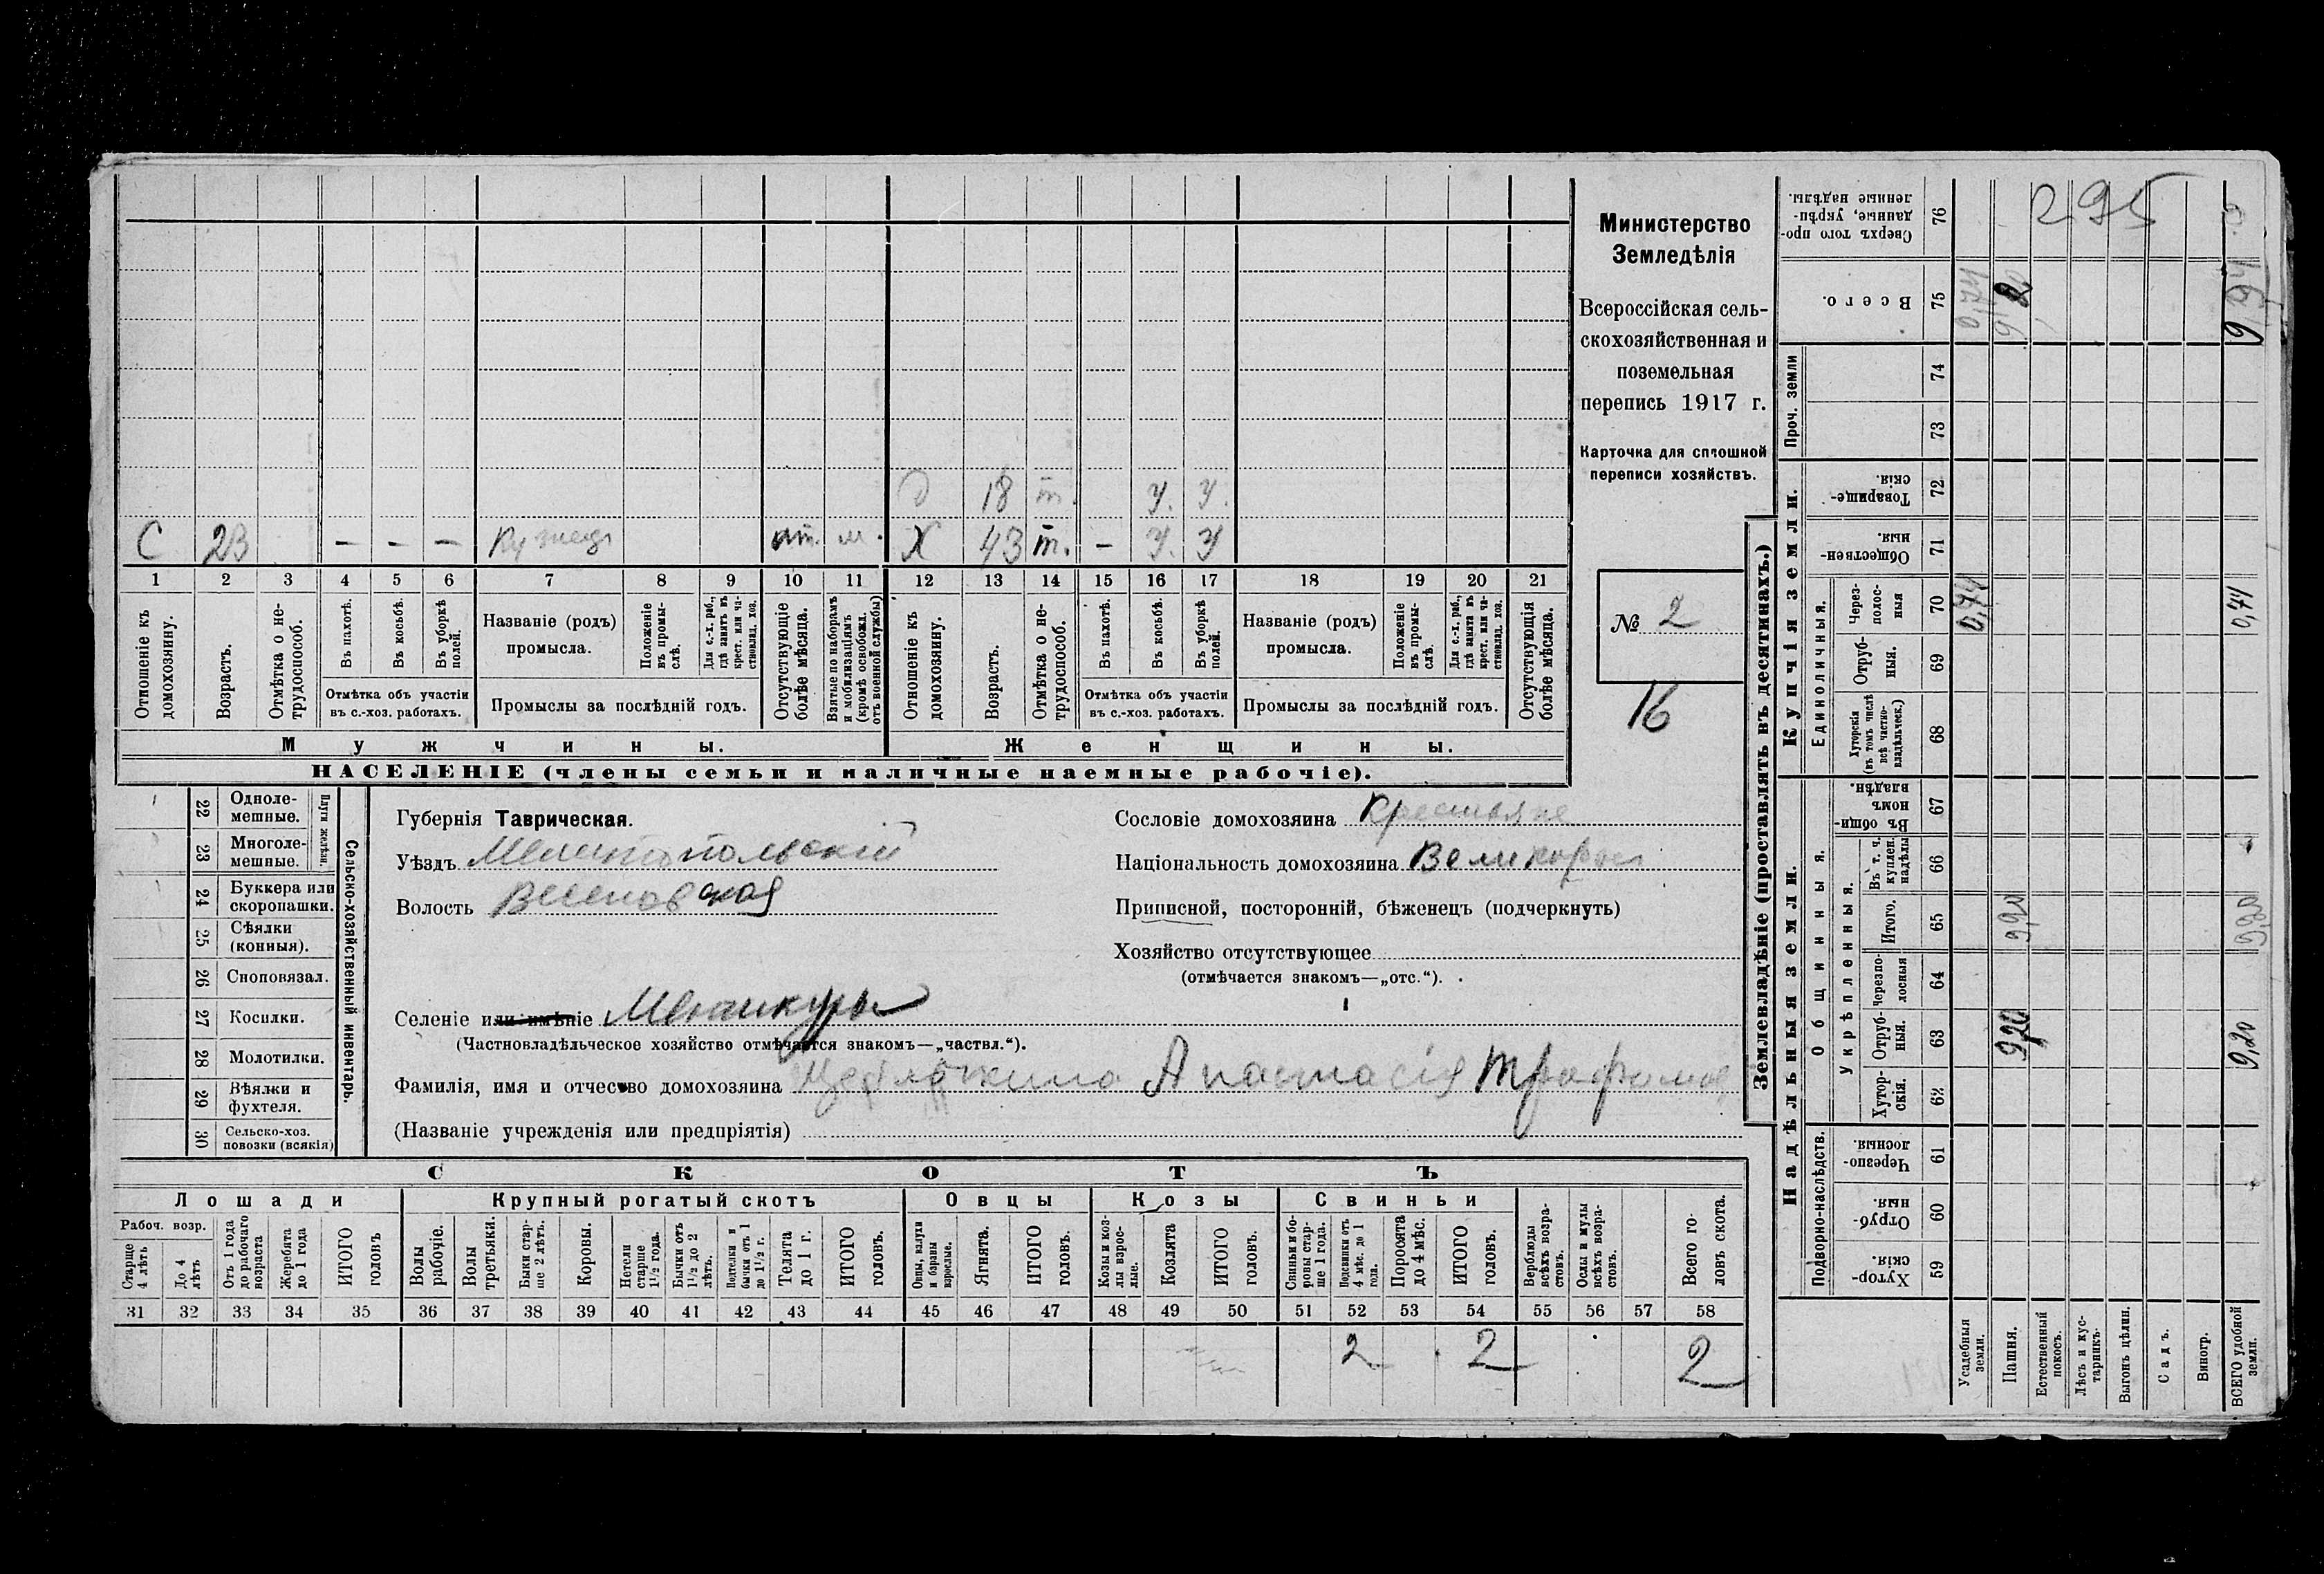 Министерство
Земледѣлія
Всероссійская сель-
скохозяйственная и
поземельная
перепись 1917 г.
Карточка для сплошной
переписи хозяйствъ.
№ 2
16
Д 18 т. У. У.
С 23 — — — Кузнецъ от. м. Х 43 т. — У. У
1 2 3 4 5 6 7 8 9 10 11 12 13 14 15 16 17 18 19 20 21
Отношеніе къ домохозяину.
Возрастъ.
Отмѣтка о не-трудоспособ.
Въ пахотѣ.
Въ косьбѣ.
Въ уборкѣ полей.
Отмѣтка объ участіи въ с.-хоз. работахъ.
Названіе (родъ) промысла.
Положеніе въ промы-слѣ.
Для с.-х. раб., гдѣ занятъ въ крест. или ча-стновлад. хоз.
Промыслы за послѣдній годъ.
Отсутствующіе болѣе мѣсяца.
Взятые по наборамъ и мобилизаціямъ (кромѣ освобожд. отъ военной службы)
Отношеніе къ домохозяину.
Возрастъ.
Отмѣтка о не-трудоспособ.
Въ пахотѣ.
Въ косьбѣ.
Въ уборкѣ полей.
Отмѣтка объ участіи въ с.-хоз. работахъ.
Названіе (родъ) промысла.
Положеніе въ промы-слѣ.
Для с.-х. раб., гдѣ занята въ крест. или ча-стновлад. хоз.
Промыслы за послѣдній годъ.
Отсутствующія болѣе мѣсяца.
Мужчины. Женщины.
НАСЕЛЕНІЕ (члены семьи и наличные наемные рабочіе).
22 Одноле-мешные.
23 Многоле-мешные.
Плуги желѣзн.
24 Буккера или скоропашки.
25 Сѣялки (конныя).
26 Сноповязал.
27 Косилки.
28 Молотилки.
29 Вѣялки и фухтеля.
30 Сельско-хоз. повозки (всякія)
Сельско-хозяйственный инвентарь.
Губернія Таврическая.
Уѣздъ Мелитопольскій
Волость Веселовская
Селеніе или имѣніе Менчикуры
(Частновладѣльческое хозяйство отмѣчается знакомъ—„частвл.“).
Фамилія, имя и отчество домохозяина Анастасія Трофимов
(Названіе учрежденія или предпріятія)
Сословіе домохозяина Крестьяне
Національность домохозяина Великоросс
Приписной, посторонній, бѣженецъ (подчеркнуть)
Хозяйство отсутствующее
(отмѣчается знакомъ—„отс.“).
СКОТЪ
Лошади Крупный рогатый скотъ Овцы Козы Свиньи
Рабоч. возр.
Старше 4 лѣтъ
До 4 лѣтъ
Отъ 1 года до рабочаго возраста
Жеребята до 1 года
ИТОГО головъ
Волы рабочіе.
Волы третьяки.
Быки стар-ше 2 лѣтъ.
Коровы.
Нетели старше 1½ года.
Бычки отъ 1½ до 2 лѣтъ.
Подтелки и бычки отъ 1 до 1½ г.
Телята до 1 г.
ИТОГО головъ.
Овцы, валухи и бараны взрослые.
Ягнята.
ИТОГО головъ.
Козы и коз-лы взрос-лые.
Козлята
ИТОГО головъ.
Свиньи и бо-ровы стар-ше 1 года.
Подсвинки отъ 4 мѣс. до 1 года.
Поросята до 4 мѣс.
ИТОГО головъ.
Верблюды всѣхъ возра-стовъ.
Ослы и мулы всѣхъ возра-стовъ.
Всего го-ловъ скота.
31 32 33 34 35 36 37 38 39 40 41 42 43 44 45 46 47 48 49 50 51 52 53 54 55 56 57 58
2 2 2
Землевладѣніе (проставлять въ десятинахъ.)
Купчія земли.
Надѣльныя земли.
Проч. земли
Единоличныя.
Общинныя.
Укрѣпленныя.
Подворно-наслѣдств.
Сверхъ того про-данные, укрѣп-ленные надѣлы. 76 295
Всего. 75
74
73
Товарище-скія. 72
Обществен-ныя. 71
Через-полос-ныя 70 0,74 0,74
Отруб-ныя. 69
Хуторскія (въ томъ числѣ всѣ частно-владѣльческ.) 68
Въ общин-номъ владѣн. 67
Въ т. ч. куплен. надѣлы 66
Итого. 65 9,20 9,20
Черезпо-лосныя 64
Отруб-ныя. 63 9,20 9,20
Хутор-скія. 62
Черезпо-лосныя. 61
Отруб-ныя. 60
Хутор-скія. 59
Усадебныя земли.
Пашня.
Естественный покосъ.
Лѣсъ и кус-тарникъ.
Выгонъ цѣлин.
Садъ.
Виногр.
ВСЕГО удобной земли.